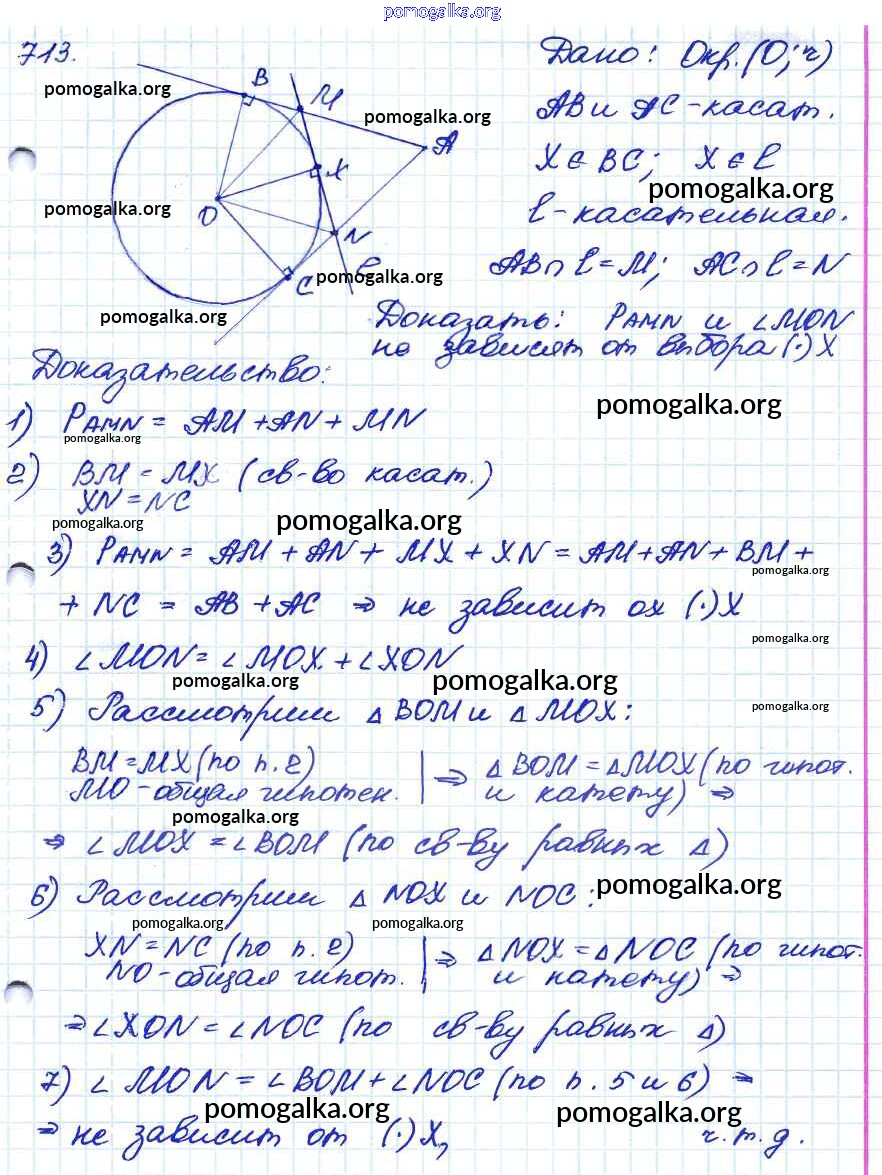 pomogalka.org
713.
Дано: Окр. (O; r)
pomogalka.org
B
M
pomogalka.org
A
AB и AC - касат.
X ∈ BC; X ∈ l
pomogalka.org
X
pomogalka.org
O
l - касательная.
N
AB ∩ l = M; AC ∩ l = N
C
pomogalka.org
l
pomogalka.org
Доказать: PAMN и ∠MON
не зависят от выбора (·) X
Доказательство:
pomogalka.org
1) PAMN = AM + AN + MN
pomogalka.org
2) BM = MX (св-во касат.)
XN = NC
pomogalka.org
pomogalka.org
3) PAMN = AM + AN + MX + XN = AM + AN + BM +
pomogalka.org
+ NC = AB + AC ⇒ не зависит ох (·) X
pomogalka.org
4) ∠MON = ∠MOX + ∠XON
pomogalka.org
pomogalka.org
5) Рассмотрим △ BOM и △ MOX:
pomogalka.org
BM = MX (по п. 2)
MO - общая гипотен.
⇒ △ BOM = △MOX (по гипот.
и катету) ⇒
pomogalka.org
⇒ ∠MOX = ∠BOM (по св-ву равных △)
6) Рассмотрим △ NOX и NOC:
pomogalka.org
pomogalka.org
pomogalka.org
XN = NC (по п. 2)
NO - общая гипот.
⇒ △NOX = △NOC (по гипот.
и катету) ⇒
⇒ ∠XON = ∠NOC (по св-ву равных △)
7) ∠MON = ∠BOM + ∠NOC (по п. 5 и 6) ⇒
pomogalka.org
pomogalka.org
⇒ не зависит от (·) X,
ч.т.д.